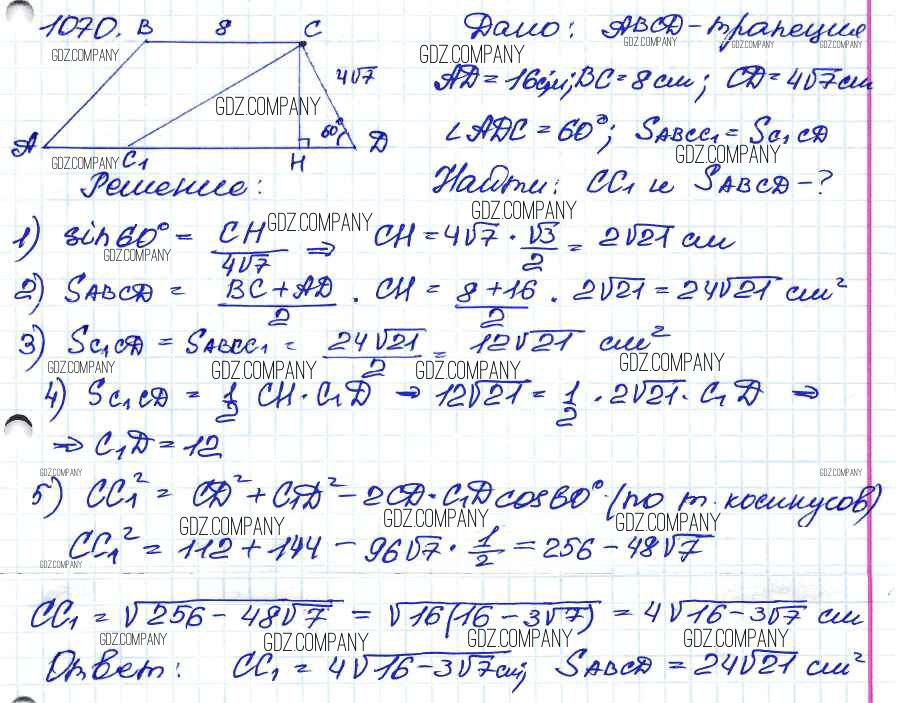 1070. B 8 C
Дано: ABCD - трапеция
AD = 16см; BC = 8 см; CD = 4√7 см
4√7
60°
∠ADC = 60°; SABCC₁ = SC₁CD
A C₁ H D
Решение:
Найти: CC₁ и SABCD - ?
1) sin60° = CH/4√7 ⇒ CH = 4√7 · √3/2 = 2√21 см
2) SABCD = BC + AD/2 · CH = 8 + 16/2 · 2√21 = 24√21 см²
3) SC₁CD = SABCC₁ = 24√21/2 = 12√21 см²
4) SC₁CD = 1/2 CH · C₁D ⇒ 12√21 = 1/2 · 2√21 · C₁D ⇒
⇒ C₁D = 12
5) CC₁² = CD² + C₁D² - 2CD · C₁D cos60° (по т. косинусов)
CC₁² = 112 + 144 - 96√7 · 1/2 = 256 - 48√7
CC₁ = √256 - 48√7 = √16(16 - 3√7) = 4√16 - 3√7 см
Ответ: CC₁ = 4√16 - 3√7 см; SABCD = 24√21 см²
GDZ.COMPANY